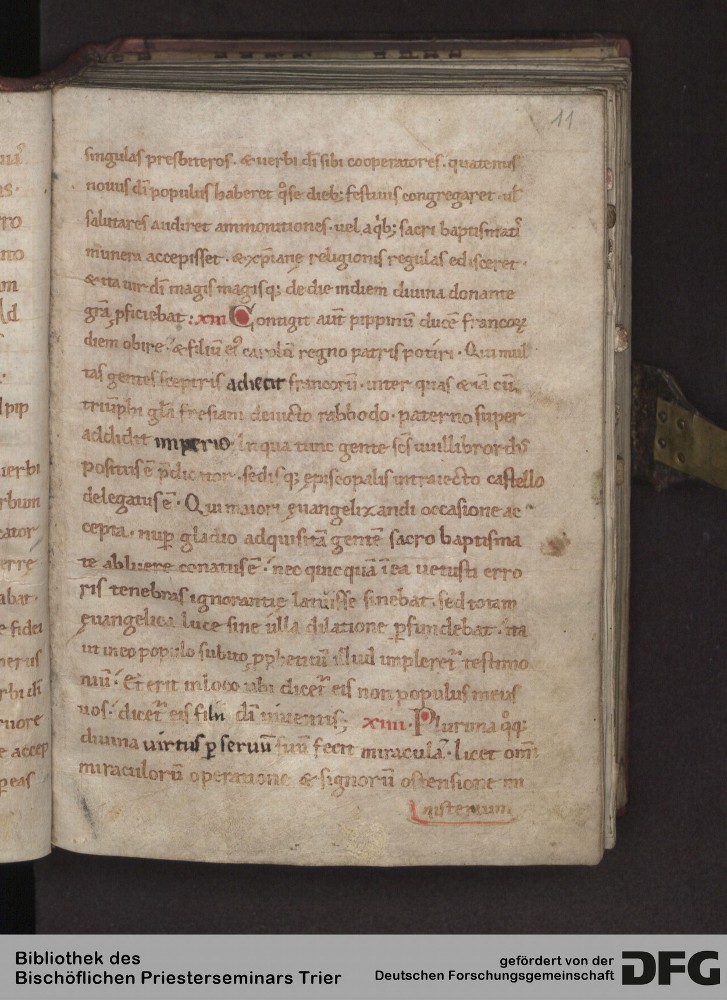 11
singulas presbiteros. & uerbi dī sibi cooperatores. quatenus
nouus dī populus haberet q̊ se dieb; festiuis congregaret. ul
salutares audiret ammonitiones. uel a q̄b; sacri baptismatī
munera accepisset. & xp̄iane religionis regulas edisceret.
& ita uir dī magis magisq; de die in diem diuina donante
grā p̄ficiebat: xiii Contigit aūt pippinū ducē francoꝝ
diem obire. & filiū ei' carolū regno patris potiri. Qui mul
tas gentes sceptris adiecit francorū. inter quas & iā cū
triūphi glā fresiam deuicto rabbodo. paterno super
addidit imperio. In qua tunc gente scs uuillibrordus
positus ē p̄dicator. sedisq; episcopalis in traiecto castello
delegatus ē. Qui maiori euangelizandi occasione ac
cepta. nup gladio adquisitā gentē sacro baptisma
te abluere conatus ē. nec quicquā in ea uetusti erro
ris tenebras ignorantie latuisse sinebat. sed totam
euangelica luce sine ulla dilatione p̱fundebat. ita
ut in eo populo subito p̱pheticū illud impleret' testimo
niū. Et erit in loco ubi dicet' eis non populus meus
uos. dicet' eis filii dī uiuentis; xiiii. Plurima q̊q;
diuina uirtus p̱ seruū suū fecit miracula. licet omī
miraculorū operatione & signorū ostensione mi
nisterium
uerbi
rbum
cator
erre
abat.
e fidei
rbi dī
e accep
peas
Bibliothek des
Bischöflichen Priesterseminars Trier
gefördert von der
Deutschen Forschungsgemeinschaft
DFG